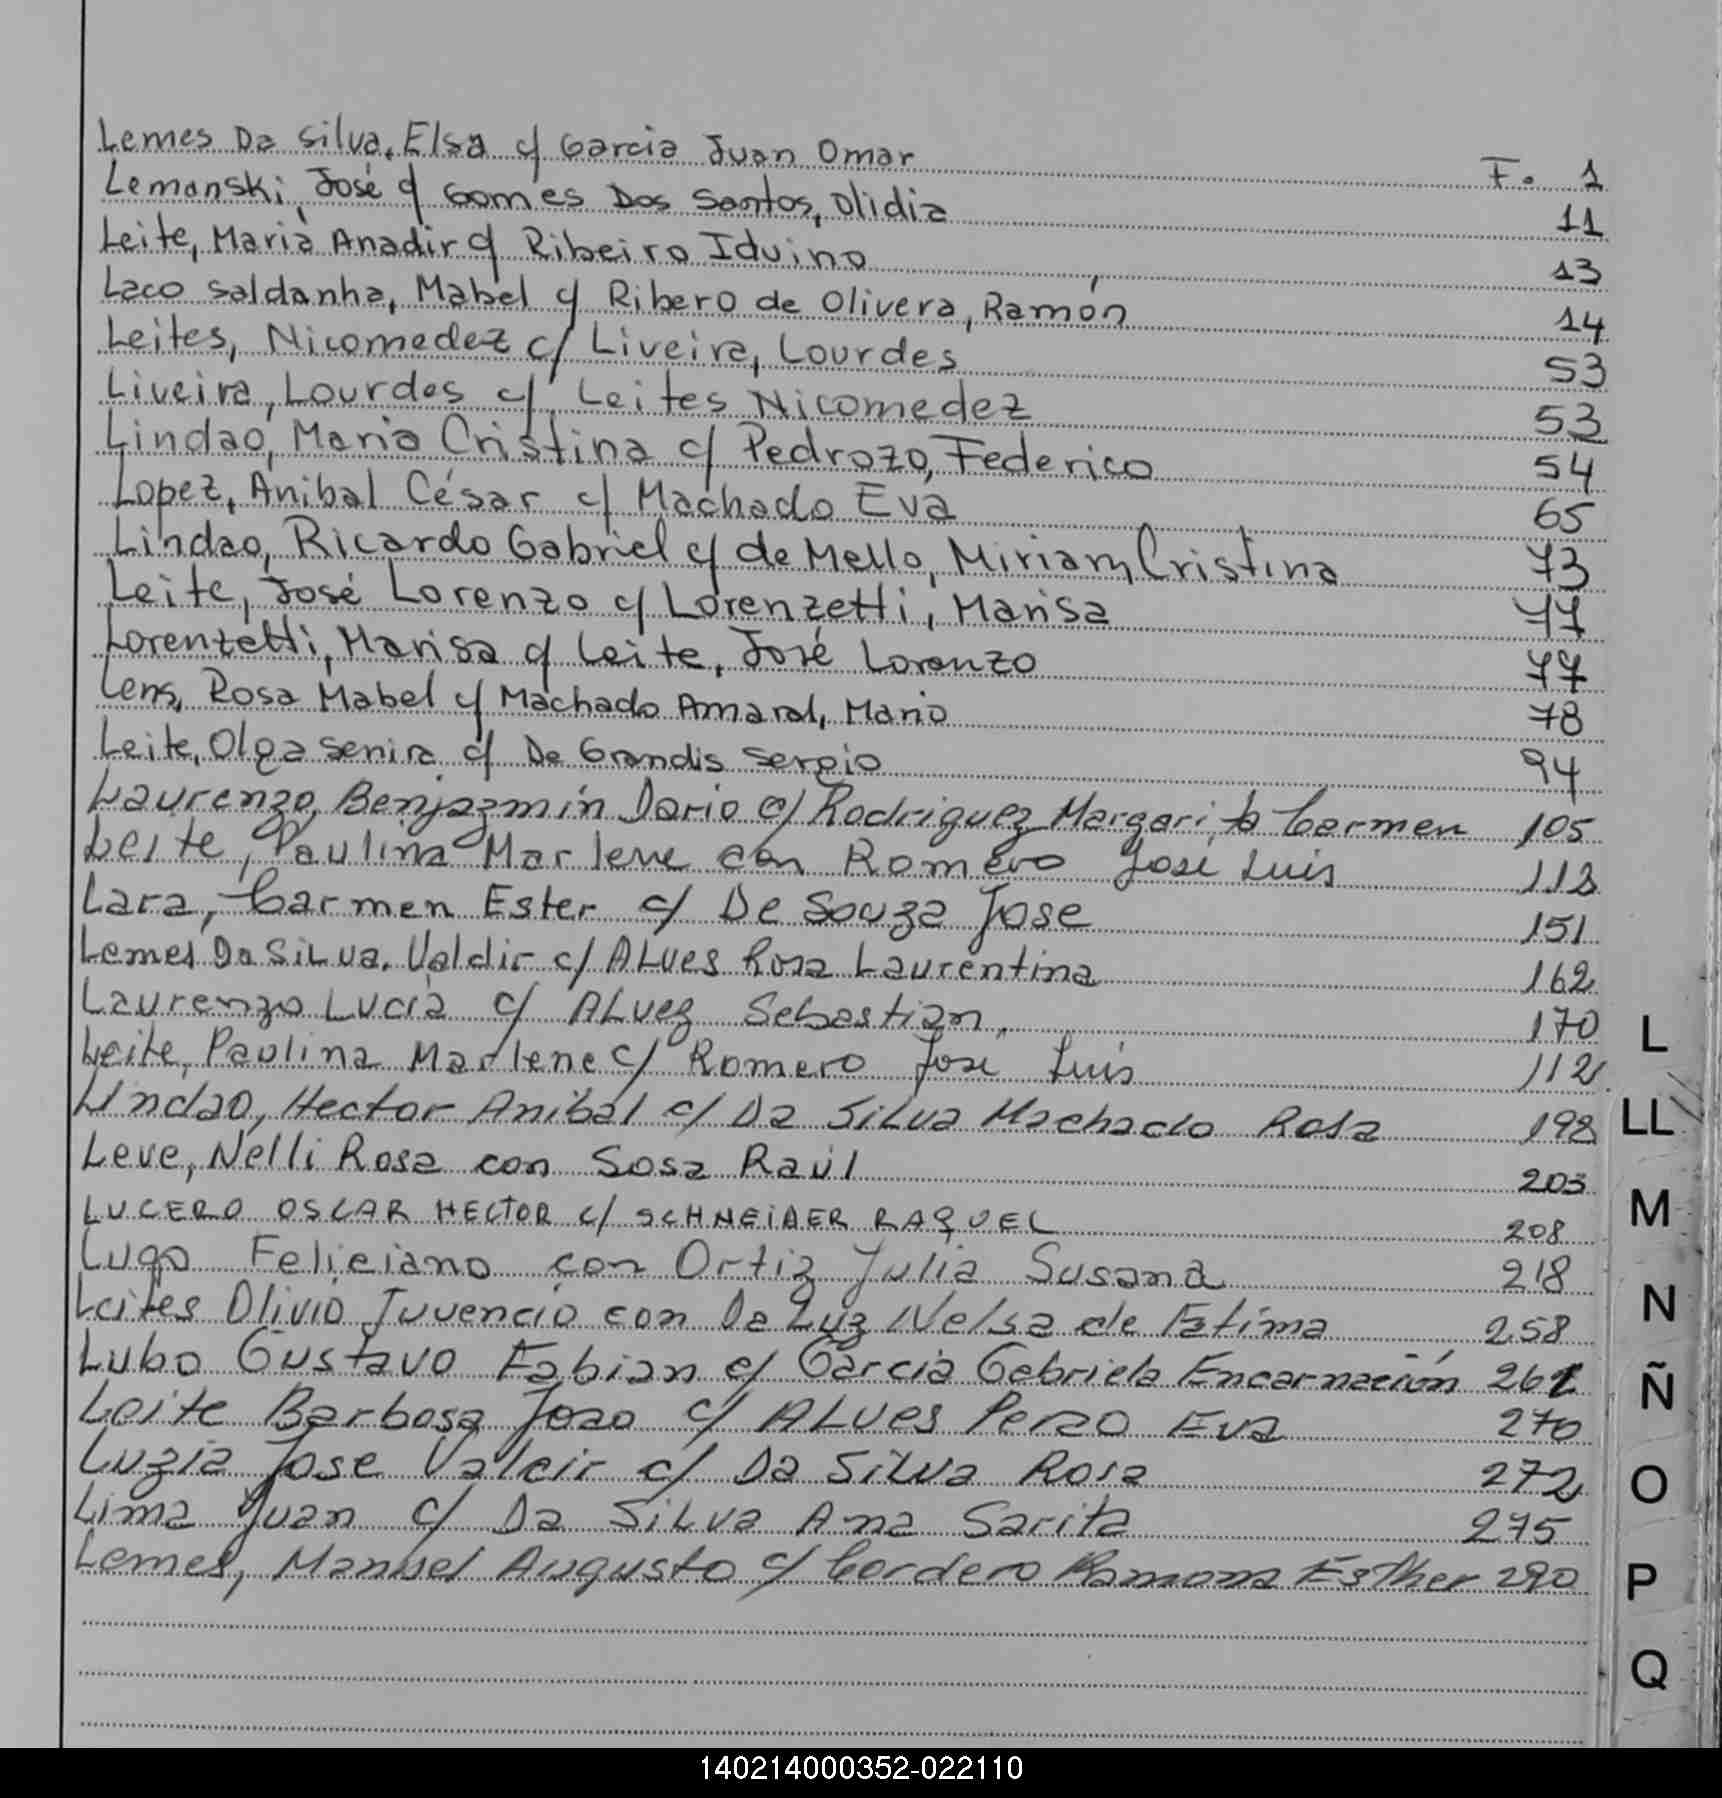 Lemes Da Silva, Elsa c/ Garcia Juan Omar F. 1
Lemanski, José c/ Gomes Dos Santos, Olidia 11
Leite, Maria Anadir c/ Ribeiro Iduino 13
Laco Saldanha, Mabel c/ Ribero de Olivera, Ramón 14
Leites, Nicomedez c/ Liveira, Lourdes 53
Liveira, Lourdes c/ Leites Nicomedez 53
Lindao, Maria Cristina c/ Pedrozo, Federico 54
Lopez, Anibal César c/ Machado Eva 65
Lindao, Ricardo Gabriel c/ de Mello, Miriam Cristina 73
Leite, José Lorenzo c/ Lorenzetti, Marisa 77
Lorenzetti, Marisa c/ Leite, José Lorenzo 77
Lens, Rosa Mabel c/ Machado Amaral, Mario 78
Leite, Olga Senira c/ De Grandis Sergio 94
Laurenzo, Benjazmín Dario c/ Rodriguez Margarita Carmen 105
Leite, Paulina Marlene con Romero José Luis 112
Lara, Carmen Ester c/ De Souza Jose 151
Lemes Da Silva, Valdir c/ Alves Rosa Laurentina 162
Laurenzo Lucia c/ Alvez Sebastian 170
Leite, Paulina Marlene c/ Romero José Luis 112
Lindao, Hector Anibal c/ Da Silva Machado Rosa 198
Leve, Nelli Rosa con Sosa Raúl 203
LUCERO OSCAR HECTOR c/ SCHNEIDER RAQUEL 208
Lugo Feliciano con Ortiz Julia Susana 218
Leites Olivio Juvencio con Da Luz Nelsa de Fatima 258
Lubo Gustavo Fabian c/ Garcia Gabriela Encarnación 261
Leite Barbosa Joao c/ Alves Pezo Eva 270
Luzia Jose Valcir c/ Da Silva Rosa 272
Lima Juan c/ Da Silva Ana Sarita 275
Lemes, Manuel Augusto c/ Cordero Ramona Esther 290
L
LL
M
N
Ñ
O
P
Q
140214000352-022110